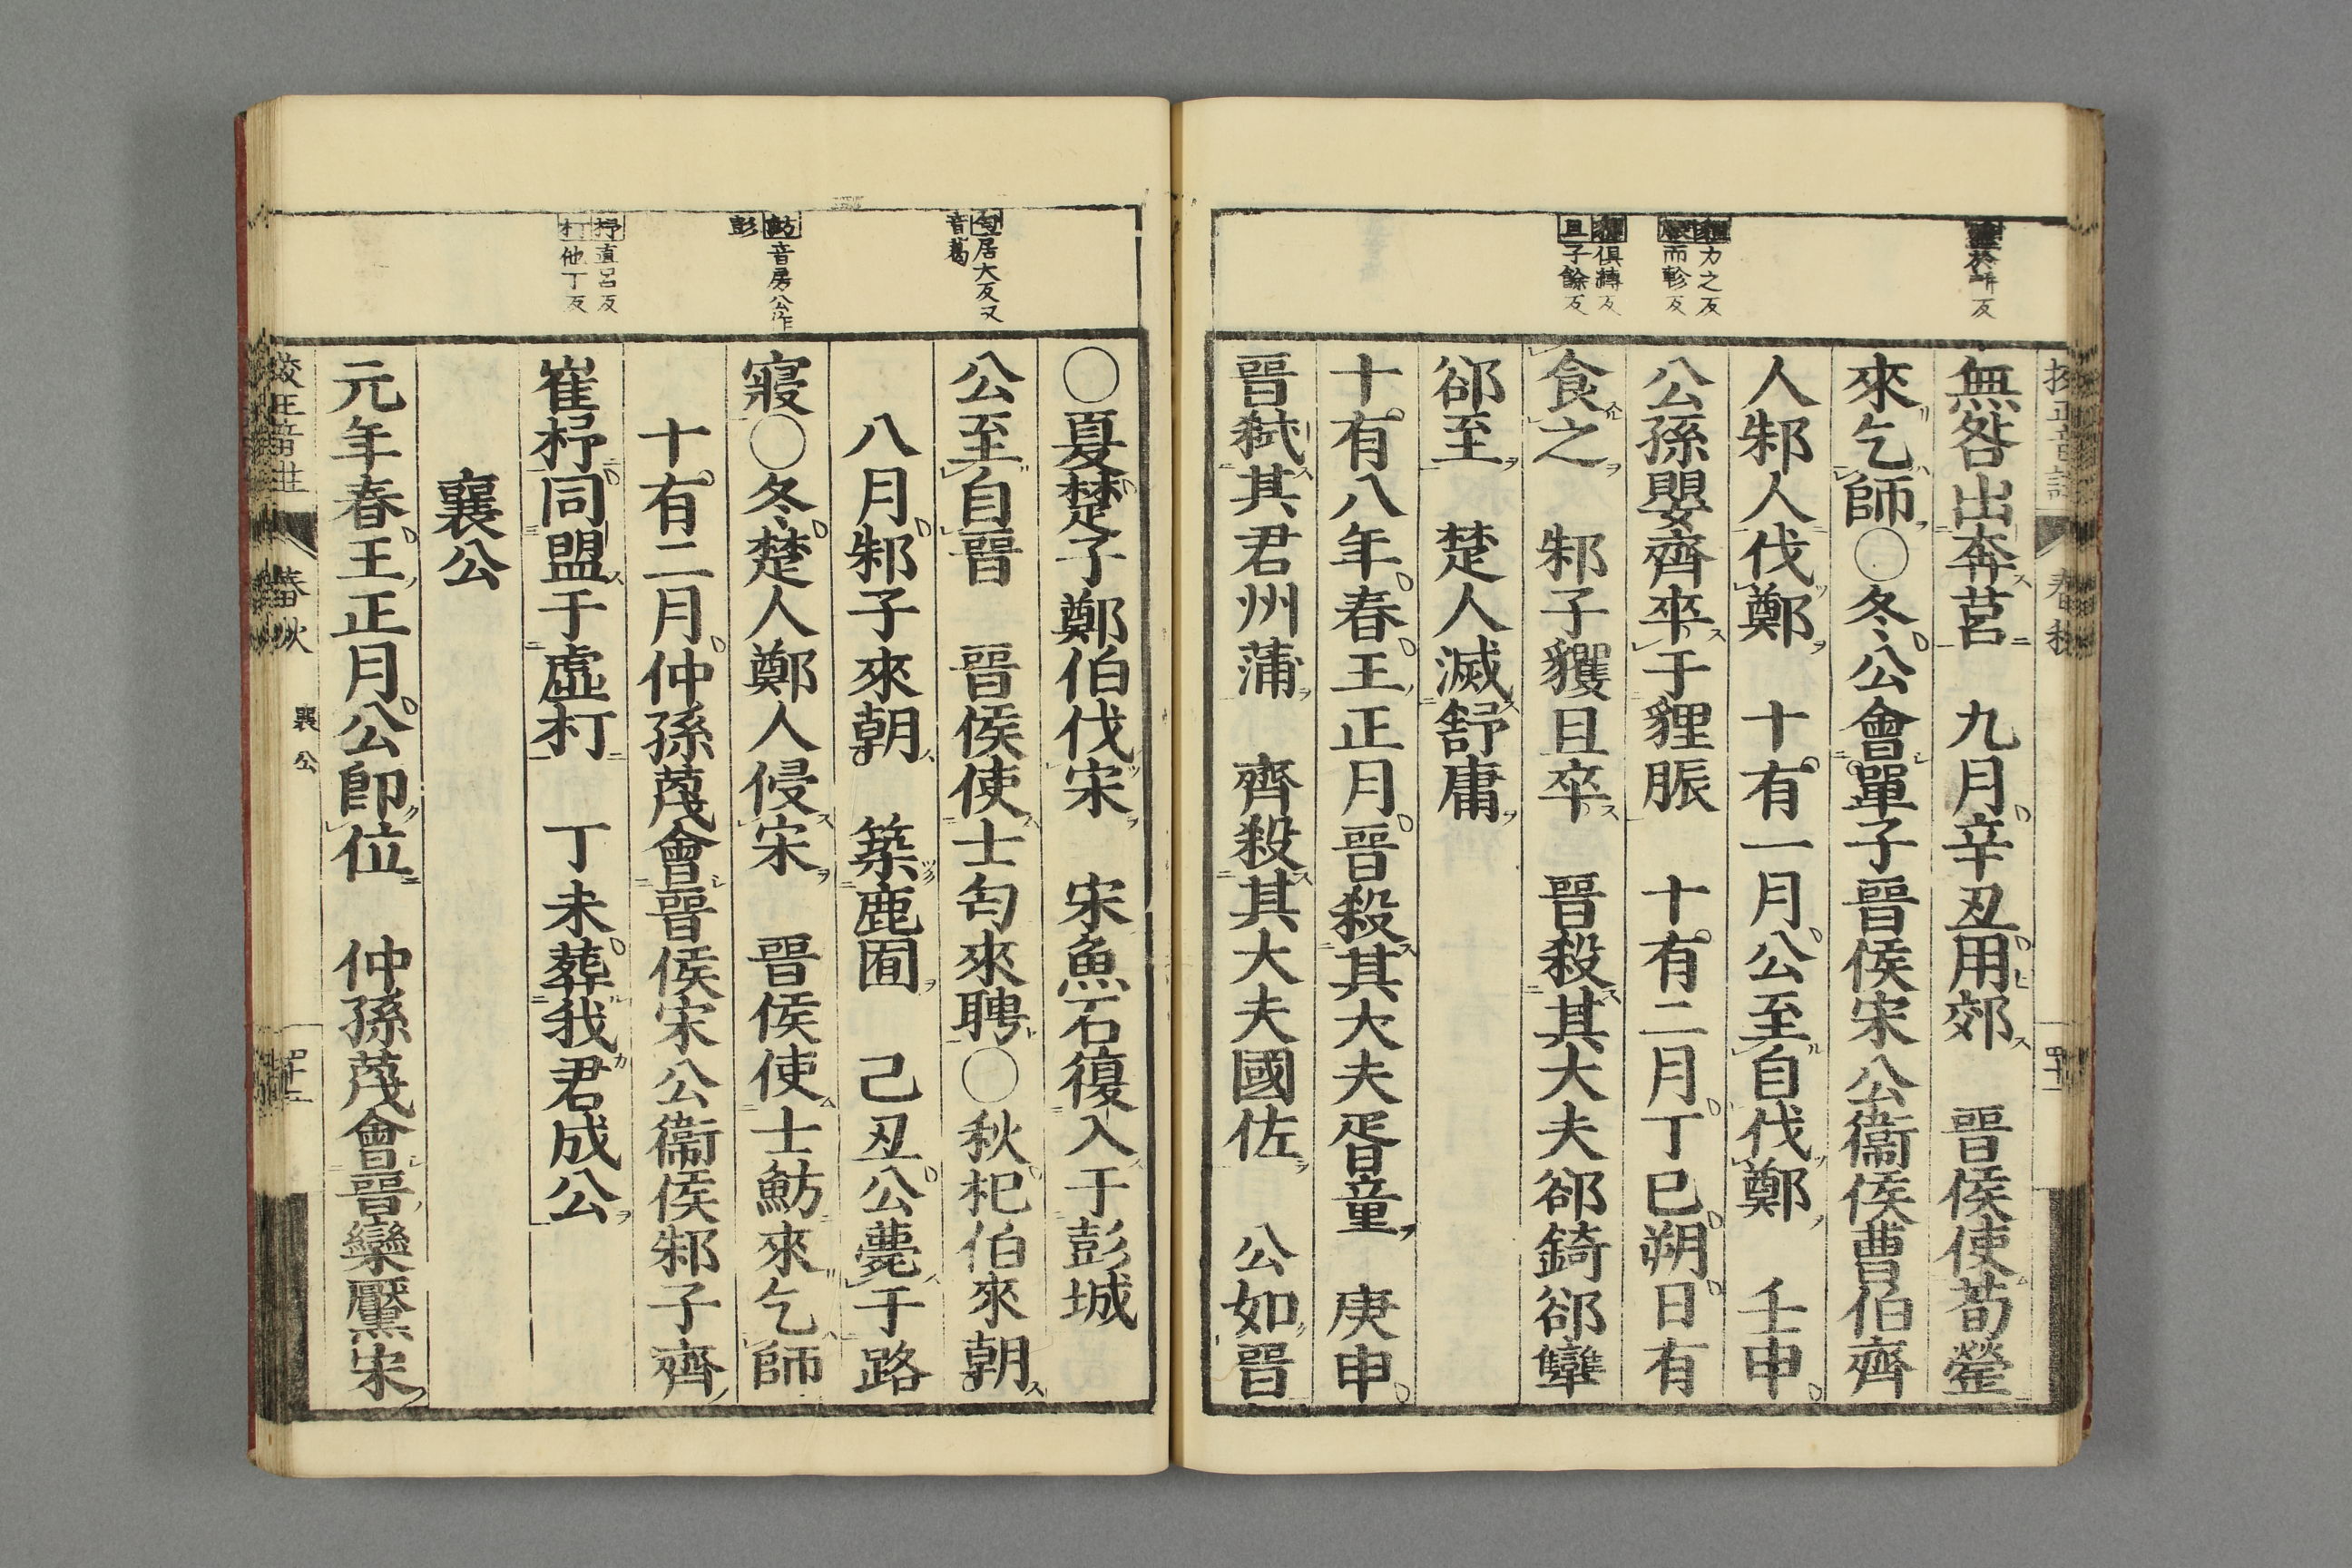 無咎出奔莒　九月辛丑用郊　晉侯使荀罃
來乞師○冬公會單子晉侯宋公衞侯曹伯齊
人邾人伐鄭　十有一月公至自伐鄭　壬申
公孫嬰齊卒于貍脤　十有二月丁巳朔日有
食之　邾子貜且卒　晉殺其大夫郤錡郤犨
郤至　楚人滅舒庸
十有八年春王正月晉殺其大夫胥童　庚申
晉弑其君州蒲　齊殺其大夫國佐　公如晉
力之反
而軫反
俱縛反
且子餘反
○夏楚子鄭伯伐宋　宋魚石復入于彭城
公至自晉　晉侯使士匄來聘○秋杞伯來朝
八月邾子來朝　築鹿囿　己丑公薨于路
寢○冬楚人鄭人侵宋　晉侯使士魴來乞師
十有二月仲孫蔑會晉侯宋公衞侯邾子齊
崔杼同盟于虛朾　丁未葬我君成公
襄公
元年春王正月公卽位　仲孫蔑會晉欒黶宋
匄居大反又
音葛
魴音房公作
彭
杼直呂反
朾他丁反
春秋
襄公